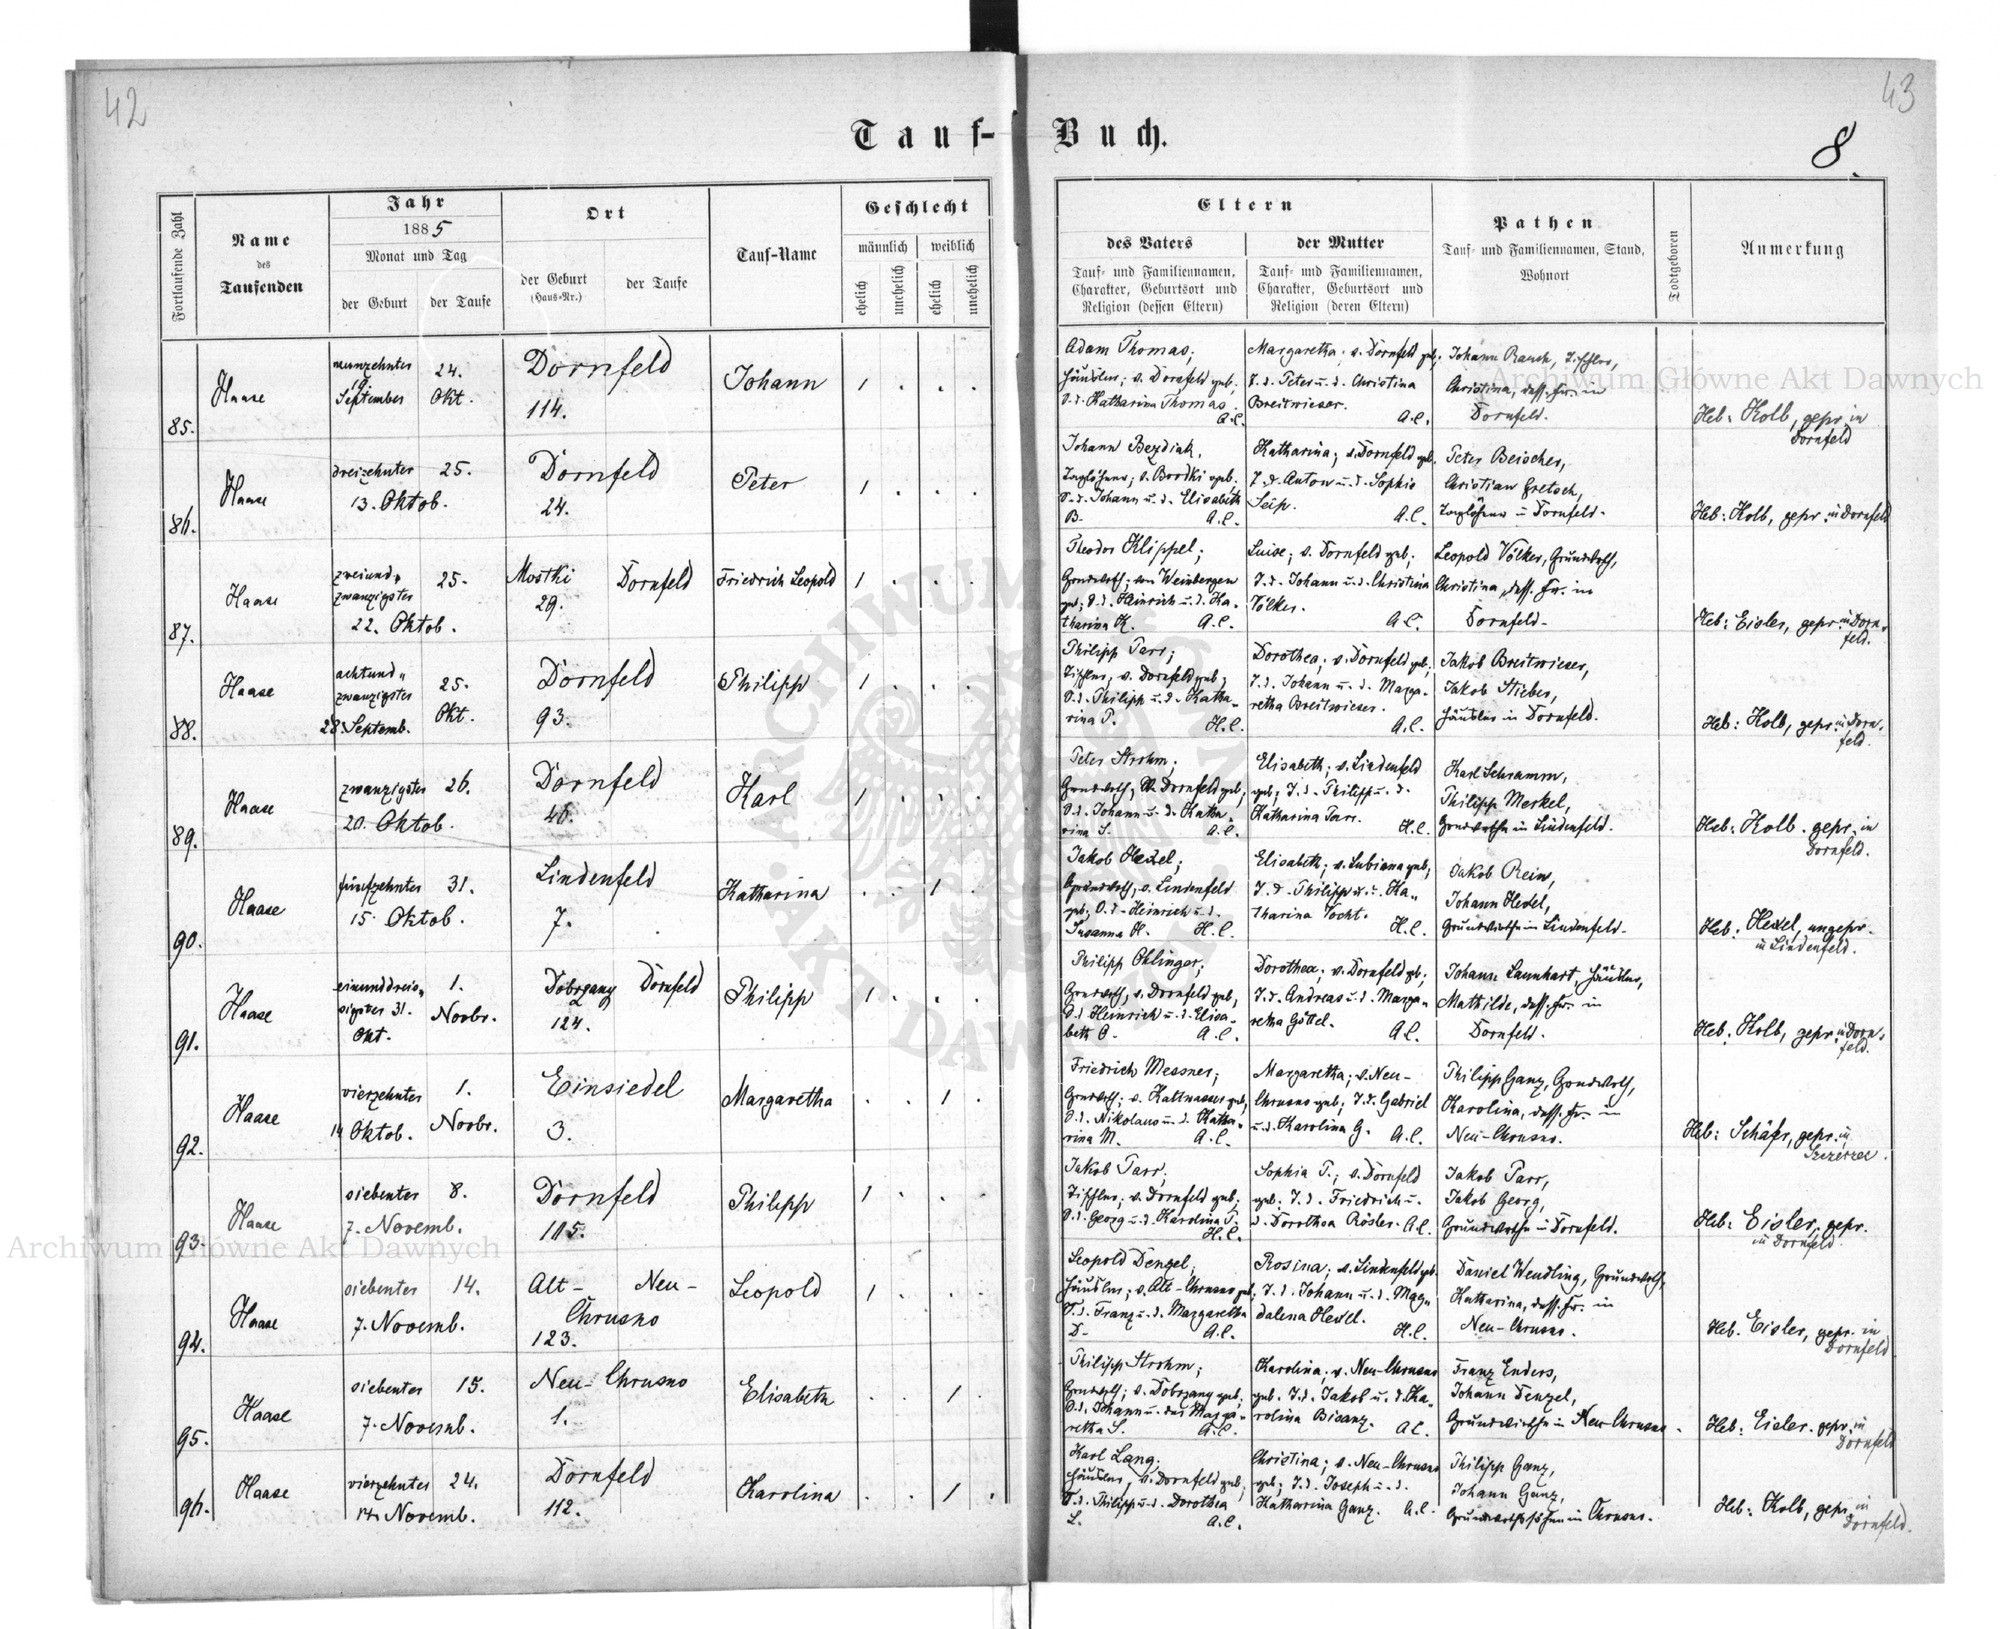 42
43
Tauf-
Buch.
8.
Fortlaufende Zahl
Name
des
Taufenden
Jahr
1885
Monat und Tag
der Geburt
der Taufe
Ort
der Geburt
(Haus-Nr.)
der Taufe
Tauf-Name
Geschlecht
männlich
weiblich
ehelich
unehelich
ehelich
unehelich
Eltern
des Vaters
Tauf- und Familiennamen,
Charakter, Geburtsort und
Religion (dessen Eltern)
der Mutter
Tauf- und Familiennamen,
Charakter, Geburtsort und
Religion (deren Eltern)
Pathen
Tauf- und Familiennamen, Stand,
Wohnort
Todtgeboren
Anmerkung
85.
Haase
neunzehnter
19
September
24.
Okt.
Dornfeld
114.
Johann
1 . . .
Adam Thomas;
Häusler; v. Dornfeld geb.
S.d. Katharina Thomas.
A.C.
Margaretha; v. Dornfeld geb.;
T.d. Peter u. d. Christina
Breitwieser.
A.C.
Johann Rauch, Tischler,
Christina, dess. Fr. in
Dornfeld.
Heb: Kolb, gepr. in
Dornfeld
86.
Haase
dreizehnter
13. Oktob.
25.
Dornfeld
24.
Peter
1 . . .
Johann Bezdiak,
Taglöhner; v. Brodki geb.
S.d. Johann u. d. Elisabeth
B.
A.C.
Katharina; v. Dornfeld geb.
T.d. Anton u. d. Sophie
Seip.
A.C.
Peter Beischer,
Christian Gretsch,
Taglöhner in Dornfeld.
Heb: Kolb, gepr. in Dornfeld
87.
Haase
zweiund-
zwanzigster
22. Oktob.
25.
Mostki
29.
Dornfeld
Friedrich Leopold
1 . . .
Theodor Klippel;
Grundwth; von Weinbergen
geb; S.d. Heinrich u. d. Ka-
tharina K.
A.C.
Luise; v. Dornfeld geb;
T.d. Johann u. d. Christina
Völker.
A.C.
Leopold Völker, Grundwth,
Christina, dess. Fr. in
Dornfeld.
Heb: Eisler, gepr. in Dorn-
feld.
88.
Haase
achtund-
zwanzigster
28. Septemb.
25.
Okt.
Dornfeld
93.
Philipp
1 . . .
Philipp Parr;
Tischler; v. Dornfeld geb;
S.d. Philipp u. d. Katha-
rina P.
H.C.
Dorothea; v. Dornfeld geb;
T.d. Johann u. d. Marga-
retha Breitwieser.
A.C.
Jakob Breitwieser,
Jakob Stieber,
Häusler in Dornfeld.
Heb: Kolb, gepr. in Dorn-
feld.
89.
Haase
zwanzigster
20. Oktob.
26.
Dornfeld
46.
Karl
1 . . .
Peter Strohm;
Grundwth; v. Dornfeld geb;
S.d. Johann u. d. Katha-
rina S.
A.C.
Elisabeth; v. Lindenfeld
geb; T.d. Philipp u. d.
Katharina Parr.
H.C.
Karl Schramm,
Philipp Merkel,
Grundwthe in Lindenfeld.
Heb: Kolb. gepr. in
Dornfeld.
90.
Haase
fünfzehnter
15. Oktob.
31.
Lindenfeld
7.
Katharina
. . 1 .
Jakob Hexel;
Grundwth; v. Lindenfeld
geb; S.d. Heinrich u. d.
Susanna H.
H.C.
Elisabeth; v. Lubiana geb;
T.d. Philipp u. d. Ka-
tharina Vocht.
H.C.
Jakob Rein,
Johann Hexel,
Grundwirthe in Lindenfeld.
Heb: Hexel, ungepr.
in Lindenfeld.
91.
Haase
einunddreis-
sigster 31.
Okt.
1.
Novbr.
Dobrzany
124.
Dornfeld
Philipp
1 . . .
Philipp Ohlinger;
Grundwth; v. Dornfeld geb;
S.d. Heinrich u. d. Elisa-
beth O.
A.C.
Dorothea; v. Dornfeld gb;
T.d. Andreas u. d. Marga-
retha Göttel.
A.C.
Johann Launhart, Häusler,
Mathilde, dess. Fr. in
Dornfeld.
Heb. Kolb, gepr. in Dorn-
feld.
92.
Haase
vierzehnter
14 Oktob.
1.
Novbr.
Einsiedel
3.
Margaretha
. . 1 .
Friedrich Messner;
Grundwth; v. Kaltwasser geb;
S.d. Nikolaus u. d. Katha-
rina M.
A.C.
Margaretha; v. Neu-
Chrusno geb; T.d. Gabriel
u. d. Karolina G.
A.C.
Philipp Ganz, Grundwth,
Karolina, dess. Fr. in
Neu-Chrusno.
Heb: Schäfer, gepr. in
Szczerzec.
93.
Haase
siebenter
7. Novemb.
8.
Dornfeld
105.
Philipp
1 . . .
Jakob Parr;
Tischler; v. Dornfeld geb;
S.d. Georg u. d. Karolina P.
H.C.
Sophia P.; v. Dornfeld
geb. T.d. Friedrich u.
d. Dorothea Rösler. A.C.
Jakob Parr,
Jakob Georg,
Grundwthe in Dornfeld.
Heb: Eisler, gepr.
in Dornfeld.
94.
Haase
siebenter
7. Novemb.
14.
Alt-
Neu-
Chrusno
123.
Leopold
1 . . .
Leopold Denzel;
Häusler; v. Alt-Chrusno geb;
S.d. Franz u. d. Margaretha
D.
A.C.
Rosina; v. Lindenfeld geb.
T.d. Johann u. d. Mag-
dalena Hexel.
H.C.
Daniel Wendling, Grundwth,
Katharina, dess. Fr. in
Neu-Chrusno.
Heb. Eisler, gepr. in
Dornfeld
95.
Haase
siebenter
7. Novemb.
15.
Neu-Chrusno
1.
Elisabeth
. . 1 .
Philipp Strohm;
Grundwth; v. Dobrzany geb;
S.d. Johann u. der Marga-
retha S.
A.C.
Karolina; v. Neu-Chrusno
geb. T.d. Jakob u. d. Ka-
rolina Bisanz.
A.C.
Franz Enders,
Johann Denzel,
Grundwirthe in Neu-Chrusno.
Heb: Eisler. gepr. in
Dornfeld
96.
Haase
vierzehnter
14. Novemb.
24.
Dornfeld
112.
Karolina
. . 1 .
Karl Lang;
Häusler; v. Dornfeld geb;
S.d. Philipp u. d. Dorothea
L.
A.C.
Christina; v. Neu-Chrusno
geb; T.d. Joseph u. d.
Katharina Ganz. A.C.
Philipp Ganz,
Johann Ganz,
in Chrusno.
Heb: Kolb, gepr. in
Dornfeld.
Archiwum Główne Akt Dawnych
Archiwum Główne Akt Dawnych